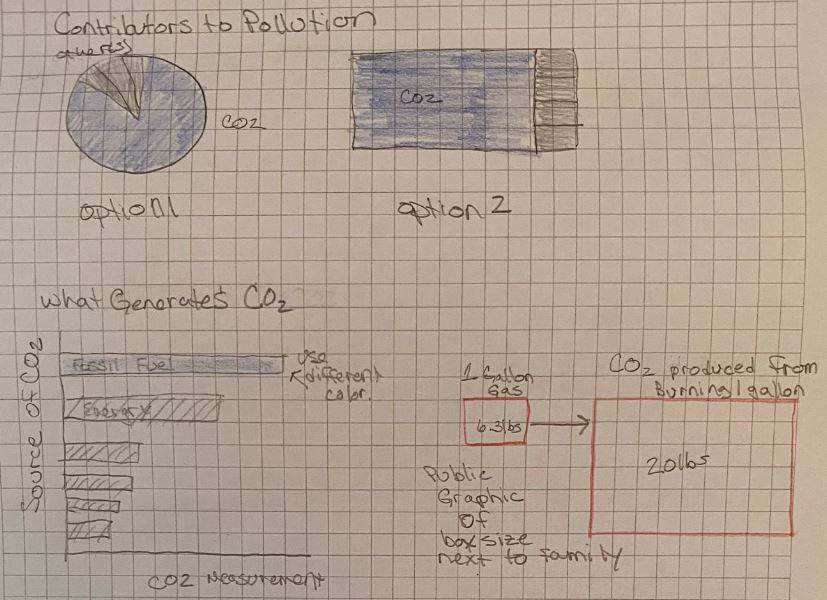 Contributors to Pollution
CO2
CO2
option 1
option 2
What Generates CO2
Source of CO2
Fossil Fuel
Use
different
color.
Energy
CO2 Measurement
1 Gallon
Gas
6.3lbs
CO2 produced from
Burning 1 gallon
20lbs
Public
Graphic
of
box size
next to family